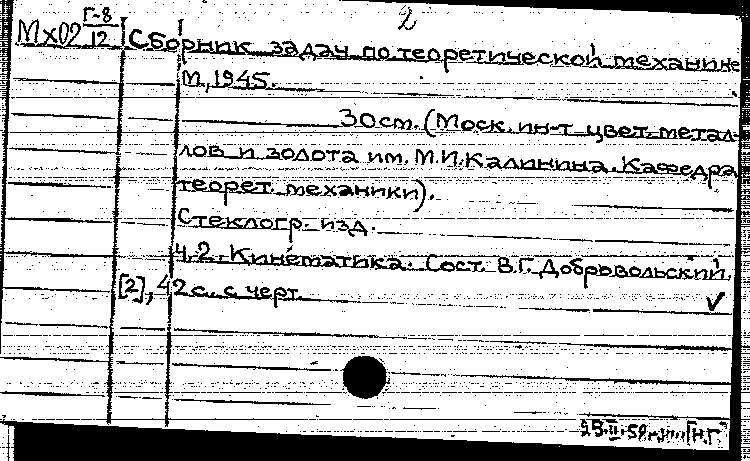 2
Мх02 Г-8/12 Сборник задач по теоретической механике
М, 1945.
30 см. (Моск. ин-т цвет. метал-
лов и золота им. М.И. Калинина. Кафедра
теорет. механики).
Стеклогр. изд.
Ч. 2. Кинематика. Сост. В.Г. Добровольский.
[2], 42 с. с черт. ✓
[Н.Г.]